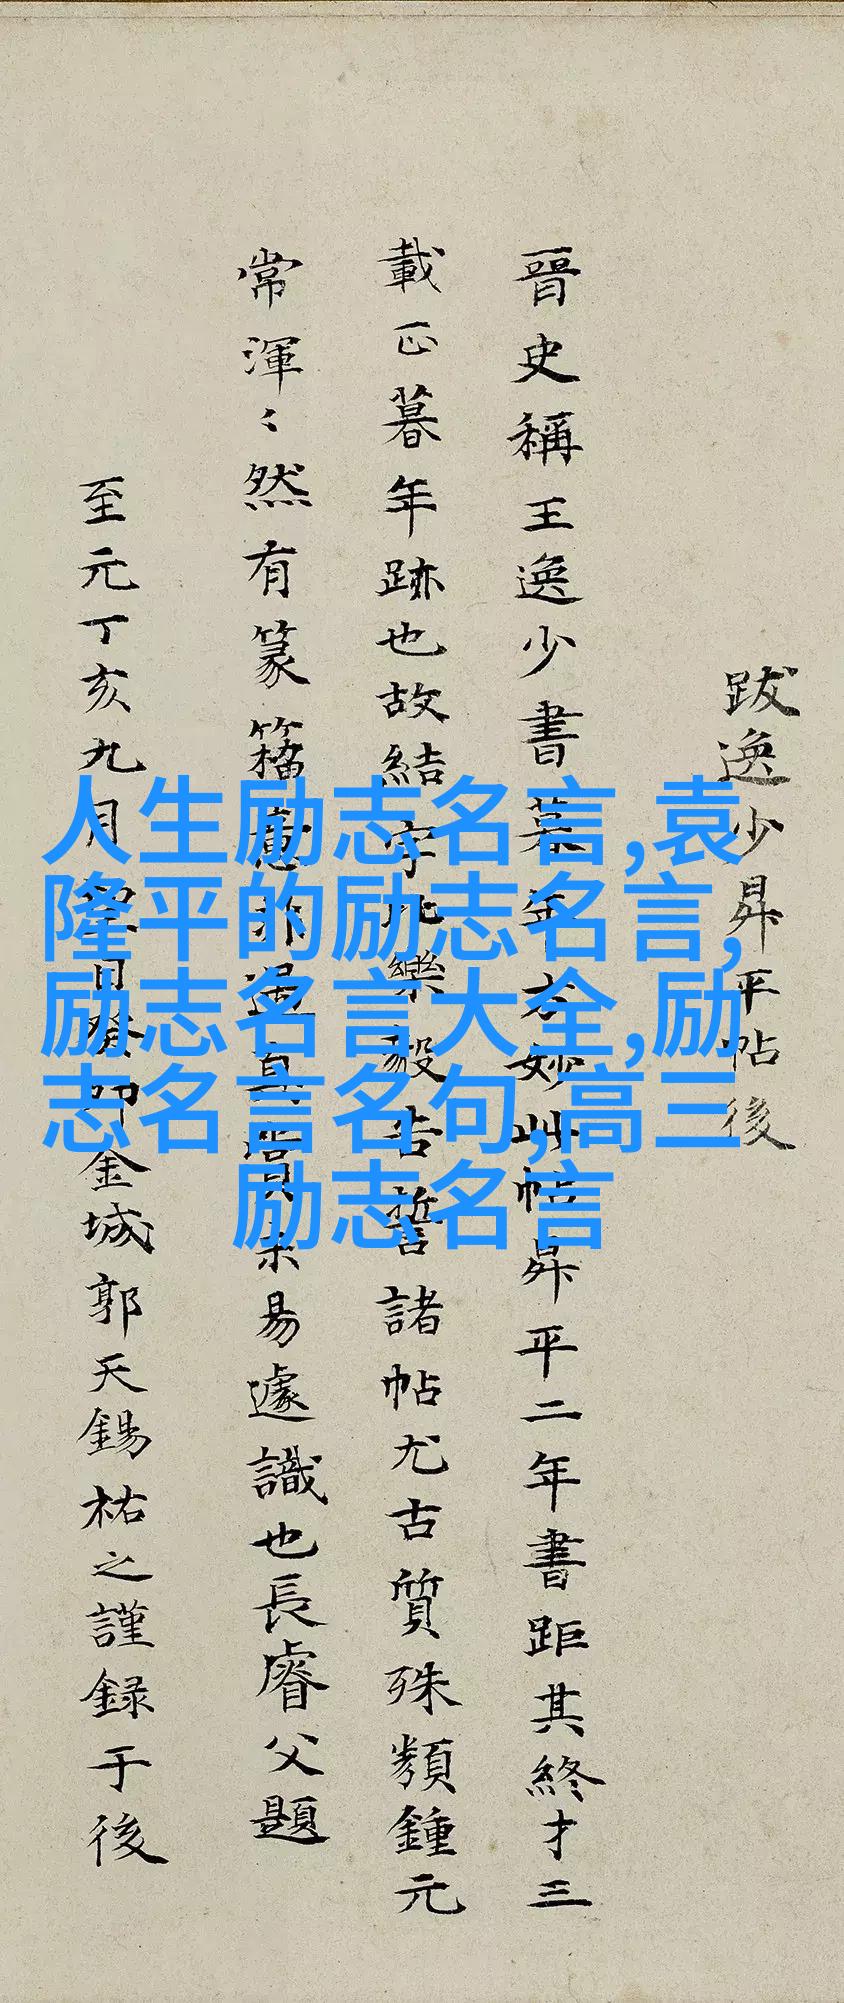 跋逸少昇平帖後
晉史稱王逸少書暮年方妙此帖昇平二年書距其終才三
載正暮年跡也故結字比樂毅告誓諸帖尤古質殊類鍾元
常渾〻然有篆籀意非遇真賞未易遽識也長睿父題
至元丁亥九月日癸卯金城郭天錫祐之謹録于後
人生励志名言,袁
隆平的励志名言,
励志名言大全,励
志名言名句,高三
励志名言